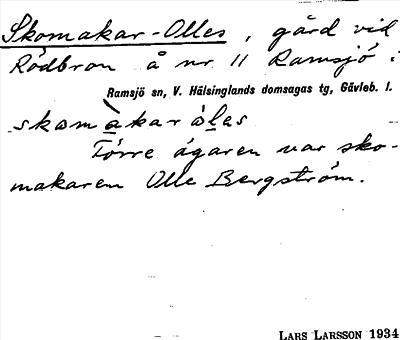 Skomakar-Olles, gård vid
Rödbron å nr 11 Ramsjö i
Ramsjö sn, V. Hälsinglands domsagas tg, Gävleb. l.
skomàkar òles
Förre ägaren var sko-
makaren Olle Bergström.
LARS LARSSON 1934